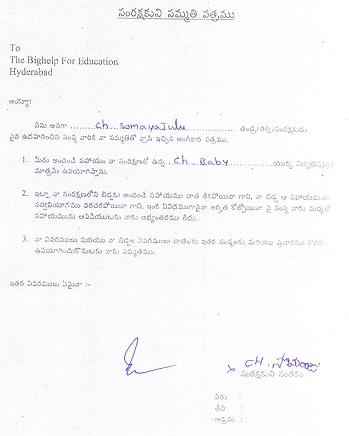 సంరక్షకుని సమ్మతి పత్రము
To
The Bighelp For Education
Hyderabad
అయ్యా!
నేను అనగా ch somayajulu తండ్రి/తల్లి/సంరక్షకుడు
పైన ఉదహరించిన సంస్థ వారికి నా సమ్మతితో వ్రాసి ఇచ్చిన అంగీకార పత్రము.
1. మీరు అందించే సహాయం నా సంరక్షణలో ఉన్న ch Baby యొక్క
మాత్రమే ఉపయోగిస్తాను.
2. ఇట్లా నా సంరక్షణలోని బిడ్డకు అందించే సహాయము దాత లేకపోయినా గాని, నా బిడ్డ ఆ సహాయమును
సద్వినియోగము పరచకపోయినా గాని, ఇంకే విధముగానైనా అర్హత కోల్పోయినా పై సంస్థ వారు మధ్యలో
సహాయమును ఆపివేయుటకు నాకు అభ్యంతరము లేదు.
3. నా వివరములు మరియు నా బిడ్డల వివరములు దాతలకు ఇతర సంస్థలకు మరియు ప్రచారము కొరకు
ఉపయోగించుకొనుటకు నాకు సమ్మతము.
ఇతర వివరములు ఏమైనా :-
x CH.
సంరక్షకుని సంతకం
పేరు :
తేది :
అడ్రసు :